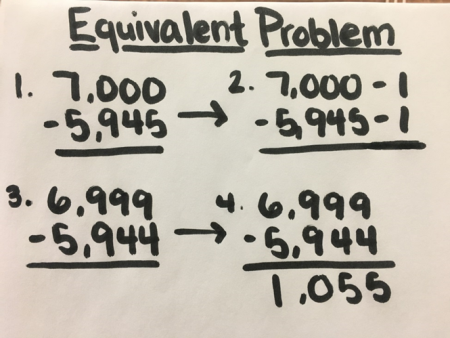 Equivalent Problem
1. 7,000
- 5,945
2. 7,000 - 1
- 5,945 - 1
3. 6,999
- 5,944
4. 6,999
- 5,944
1,055